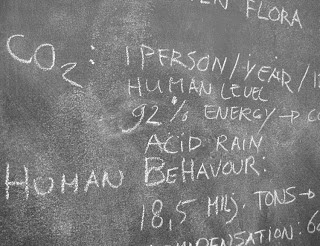 FLORA
CO2: 1 PERSON/YEAR/
HUMAN LEVEL
92% ENERGY →
ACID RAIN
HUMAN BEHAVIOUR:
18,5 MILJ. TONS →